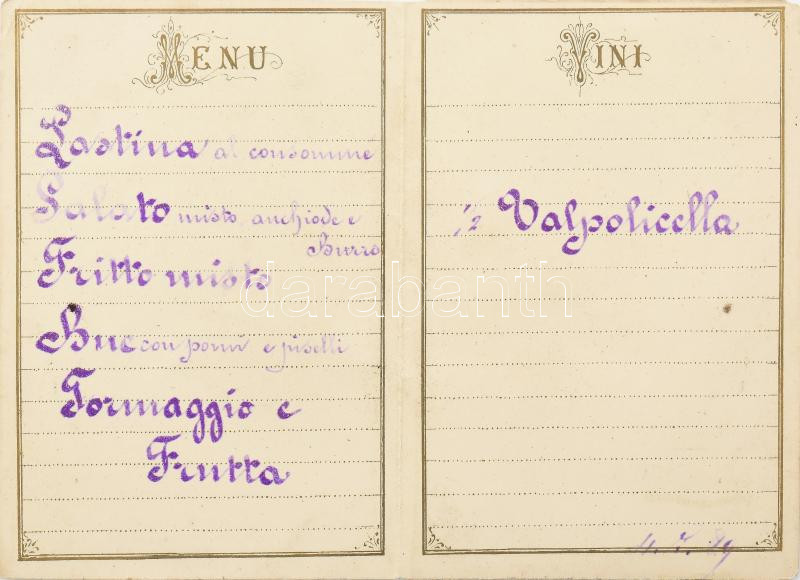 MENU
Pastina al consomme
Salato misto anchiode e
Burro
Fritto misto
Bue con pomi e piselli
Formaggio e
Frutta
VINI
1/2 Valpolicella
darabanth